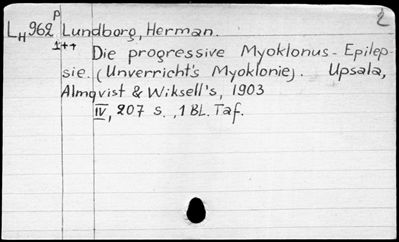 2
L_H 962 P Lundborg, Herman.
1++ Die progressive Myoklonus-Epilep-
sie. (Unverricht's Myoklonie). Upsala,
Almqvist & Wiksell's, 1903
IV, 207 S., 1 BL. Taf.